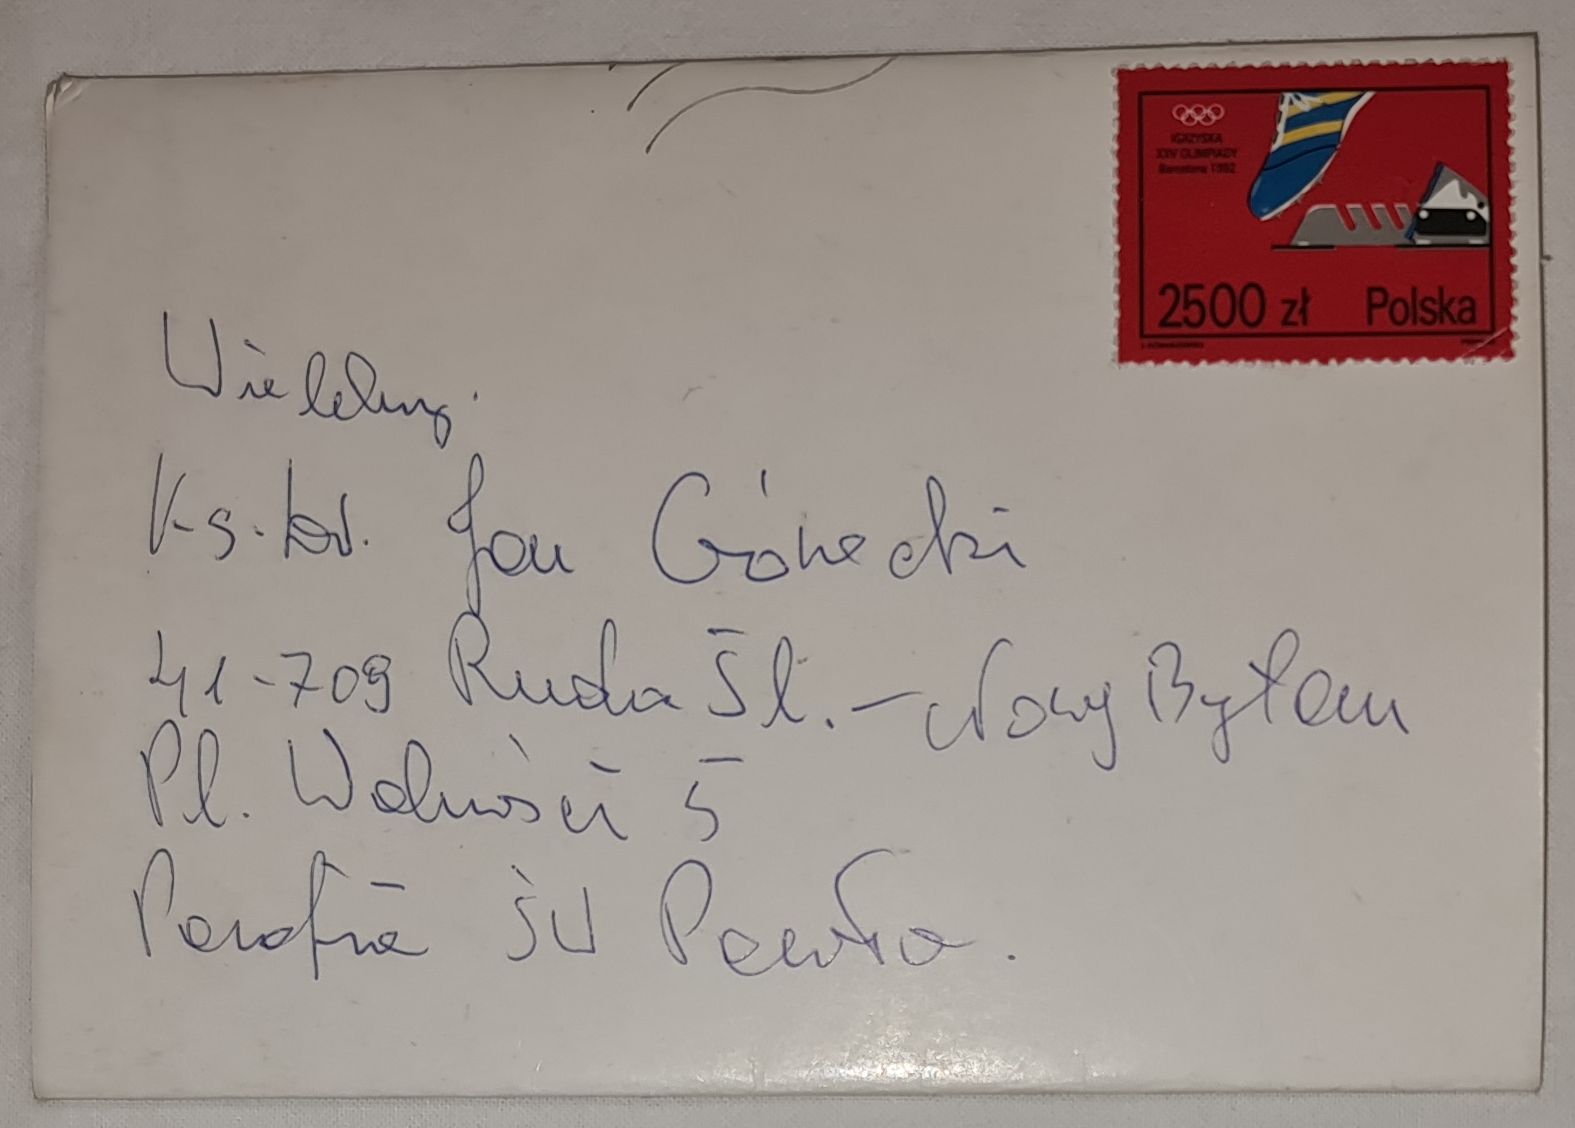 IGRZYSKA
XXV OLIMPIADY
Barcelona 1992
2500 zł Polska
Wielebny.
Ks. kan. Jan Górecki
41-709 Ruda Śl. - Nowy Bytom
Pl. Wolności 5
Parafia ŚW Pawła.